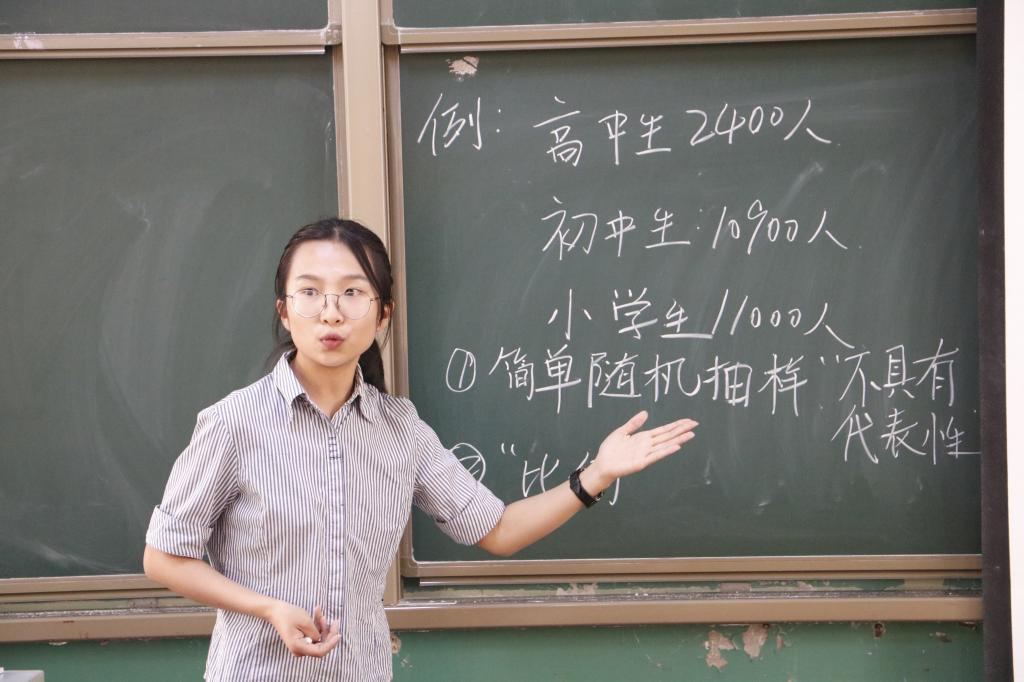 例：高中生2400人
初中生：10900人
小学生11000人
①简单随机抽样“不具有
代表性
②“比